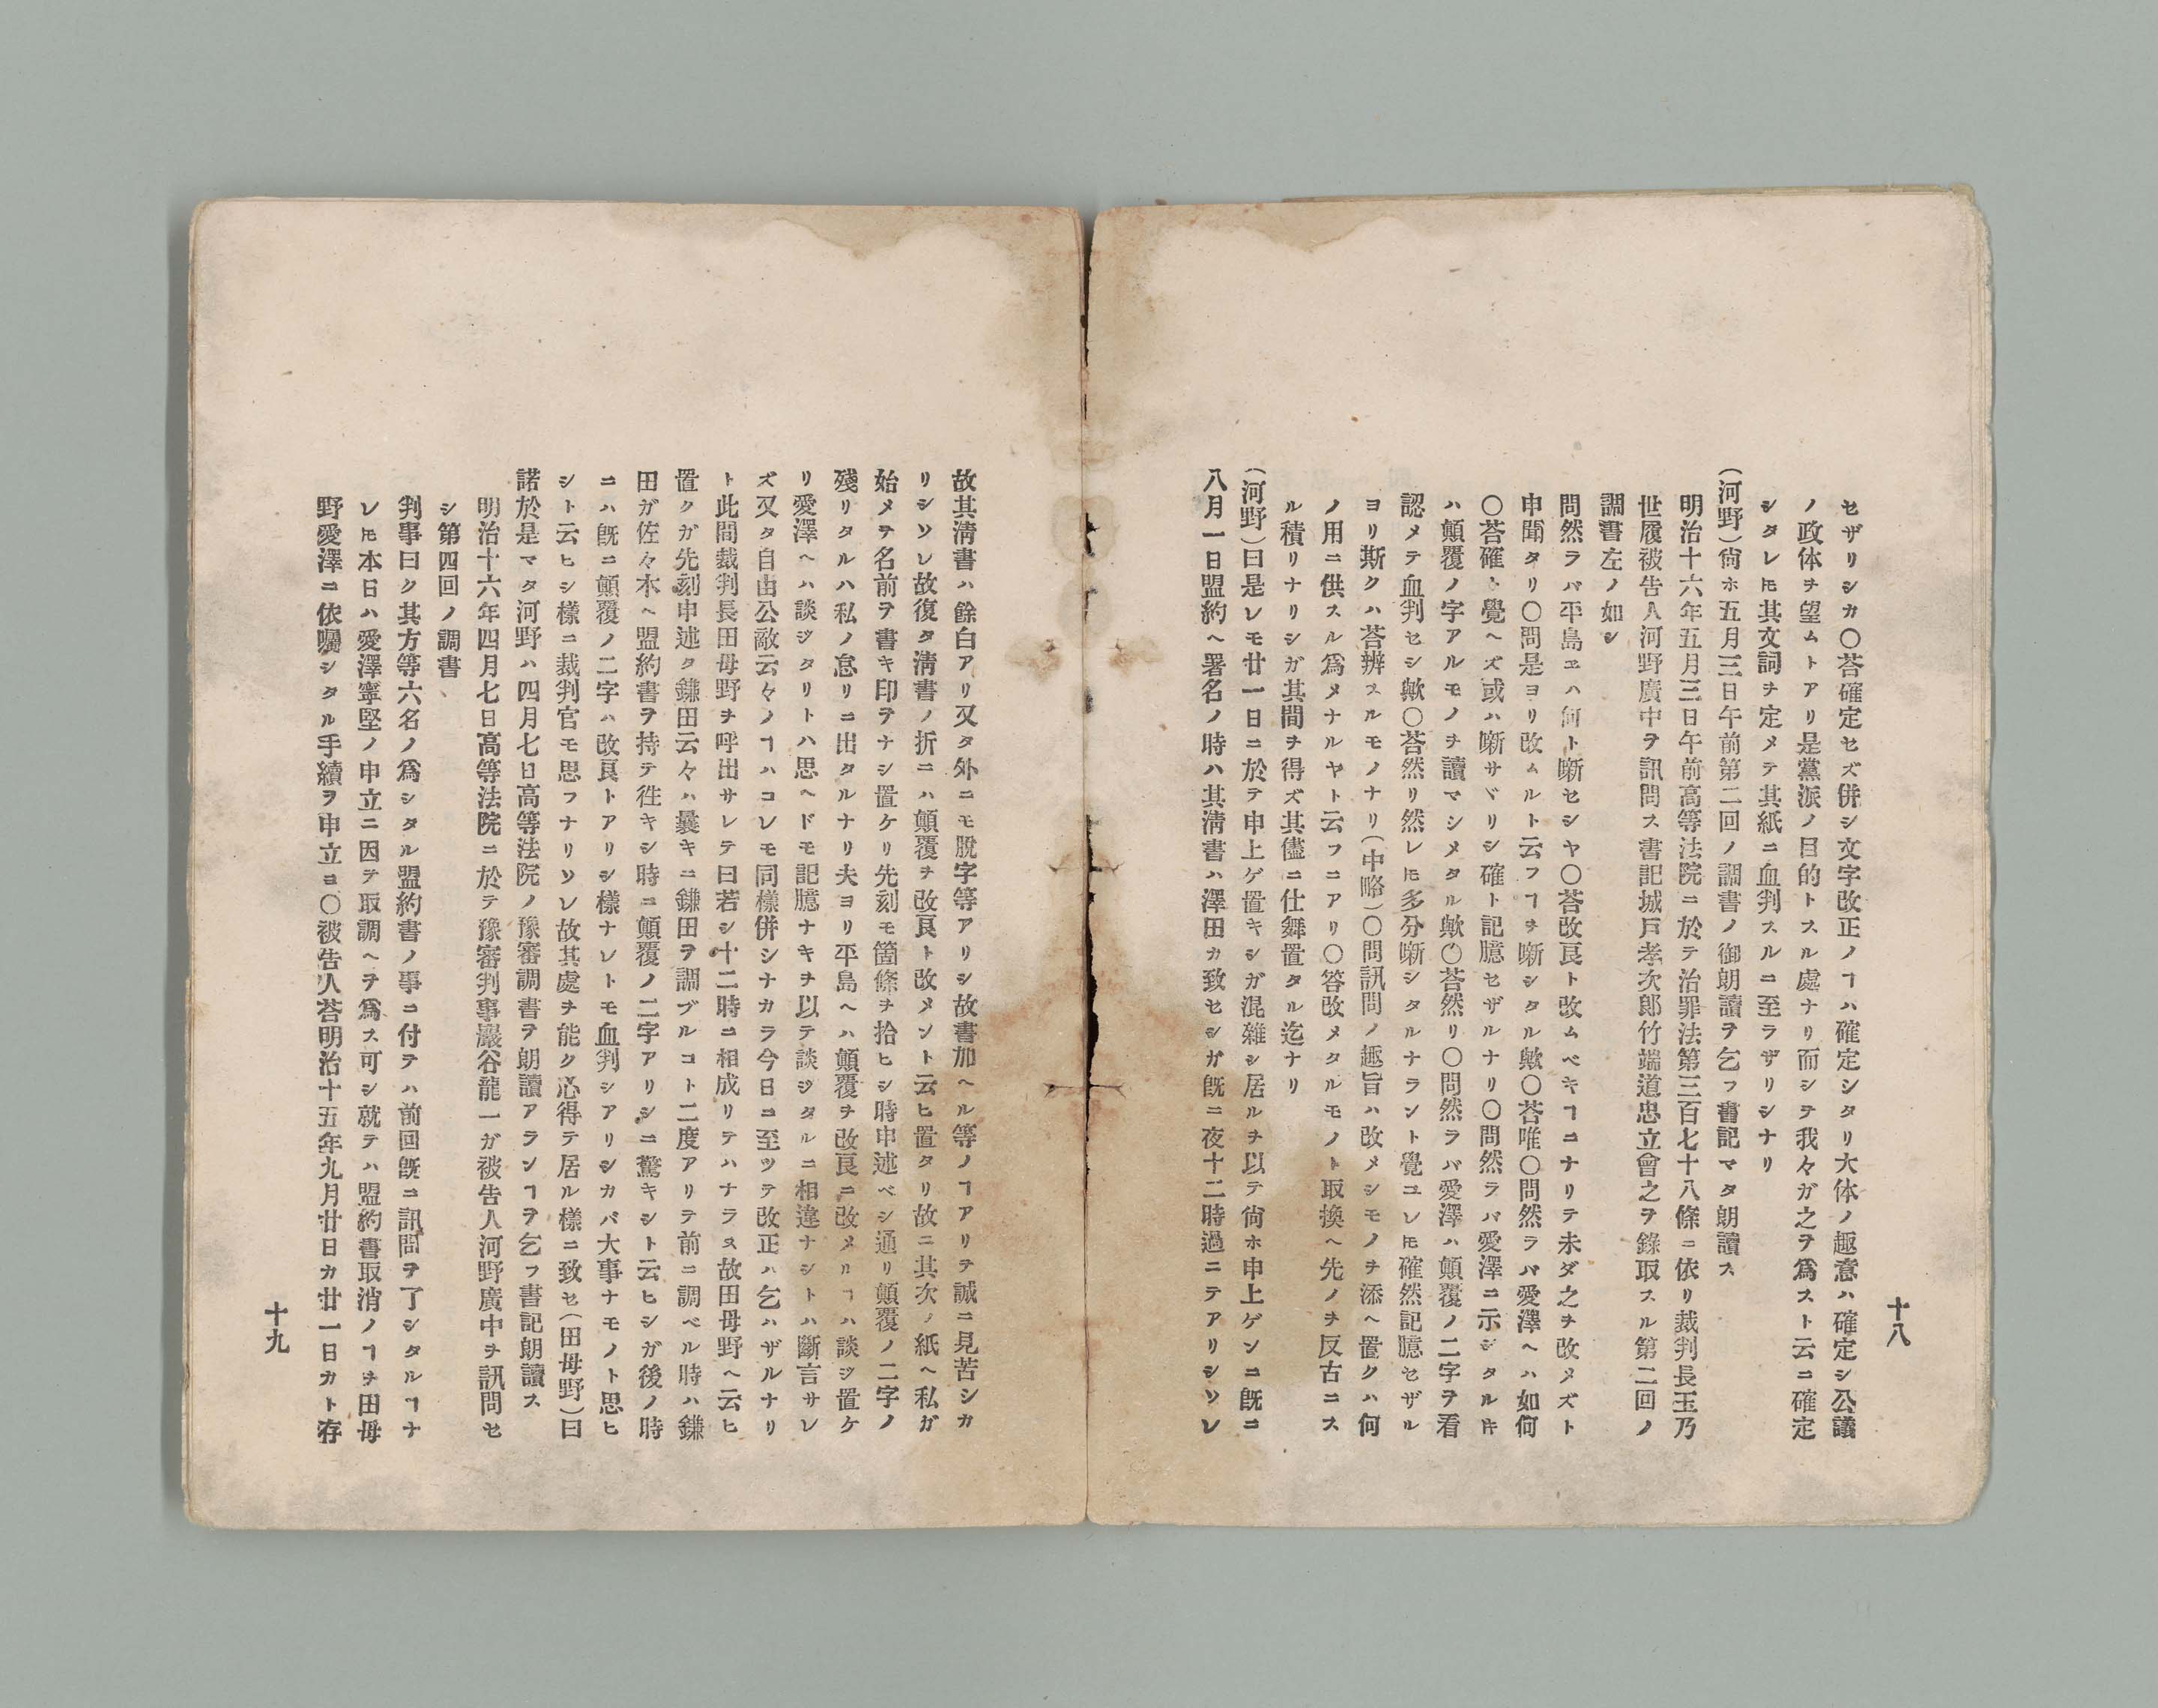 十八
セザリシカ〇荅確定セズ併シ文字改正ノヿハ確定シタリ大体ノ趣意ハ確定シ公議
ノ政体ヲ望ムトアリ是黨派ノ目的トスル處ナリ而シテ我々ガ之ヲ爲スト云ニ確定
シタレ𪜈其文詞ヲ定メテ其紙ニ血判スルニ至ラザリシナリ
(河野)尙ホ五月三日午前第二回ノ調書ノ御朗讀ヲ乞フ書記マタ朗讀ス
明治十六年五月三日午前高等法院ニ於テ治罪法第三百七十八條ニ依リ裁判長玉乃
世履被告人河野廣中ヲ訊問ス書記城戸孝次郎竹端道忠立會之ヲ錄取スル第二回ノ
調書左ノ如シ
問然ラバ平島ヱハ何ト噺セシヤ〇荅改良ト改ムベキヿニナリテ未ダ之ヲ改メズト
申聞タリ〇問是ヨリ改ムルト云フヿヲ噺シタル歟〇荅唯〇問然ラバ愛澤ヘハ如何
〇荅確ト覺ヘズ或ハ噺サヾリシ確ト記臆セザルナリ〇問然ラバ愛澤ニ示シタル𪜈
ハ顛覆ノ字アルモノヲ讀マシメタル歟〇荅然リ〇問然ラバ愛澤ハ顛覆ノ二字ヲ看
認メテ血判セシ歟〇荅然リ然レ𪜈多分噺シタルナラント覺ユレ𪜈確然記臆セザル
ヨリ斯クハ荅辨スルモノナリ(中略)〇問訊問ノ趣旨ハ改メシモノヲ添ヘ置クハ何
ノ用ニ供スル爲メナルヤト云フニアリ〇答改メタルモノト取換ヘ先ノヲ反古ニス
ル積リナリシガ其間ヲ得ズ其儘ニ仕舞置タル迄ナリ
(河野)曰是レモ廿一日ニ於テ申上ゲ置キシガ混雜シ居ルヲ以テ尙ホ申上ゲンニ既ニ
八月一日盟約ヘ署名ノ時ハ其淸書ハ澤田カ致セシガ既ニ夜十二時過ニテアリシソレ
故其淸書ハ餘白アリ又タ外ニモ脫字等アリシ故書加ヘル等ノヿアリテ誠ニ見苦シカ
リシソレ故復タ淸書ノ折ニハ顛覆ヲ改良ト改メント云ヒ置タリ故ニ其次ノ紙ヘ私ガ
始メヲ名前ヲ書キ印ヲナシ置ケリ先刻モ箇條ヲ拾ヒシ時申述ベシ通リ顛覆ノ二字ノ
殘リタルハ私ノ怠リニ出タルナリ夫ヨリ平島ヘハ顛覆ヲ改良ニ改メルヿハ談ジ置ケ
リ愛澤ヘハ談ジタリトハ思ヘドモ記臆ナキヲ以テ談ジタルニ相違ナシトハ斷言サレ
ズ又タ自由公敵云々ノヿハコレモ同樣併シナカラ今日ニ至ツテ改正ハ乞ハザルナリ
ト此間裁判長田母野ヲ呼出サレテ曰若シ十二時ニ相成リテハナラヌ故田母野ヘ云ヒ
置クガ先刻申述ク鎌田云々ハ曩キニ鎌田ヲ調ブルコト二度アリテ前ニ調ベル時ハ鎌
田ガ佐々木ヘ盟約書ヲ持テ徃キシ時ニ顛覆ノ二字アリシニ驚キシト云ヒシガ後ノ時
ニハ既ニ顛覆ノ二字ハ改良トアリシ樣ナレトモ血判シアリシカバ大事ナモノト思ヒ
シト云ヒシ樣ニ裁判官モ思フナリソレ故其處ヲ能ク心得テ居ル樣ニ致セ(田母野)曰
諾於是マタ河野ハ四月七日高等法院ノ豫審調書ヲ朗讀アランヿヲ乞フ書記朗讀ス
明治十六年四月七日高等法院ニ於テ豫審判事巖谷龍一ガ被告人河野廣中ヲ訊問セ
シ第四回ノ調書
判事曰ク其方等六名ノ爲シタル盟約書ノ事ニ付テハ前回既ニ訊問ヲ了シタルヿナ
レ𪜈本日ハ愛澤寧堅ノ申立ニ因テ取調ヘヲ爲ス可シ就テハ盟約書取消ノヿヲ田母
野愛澤ニ依囑シタル手續ヲ申立ヨ〇被告人荅明治十五年九月廿日カ廿一日カト存
十九